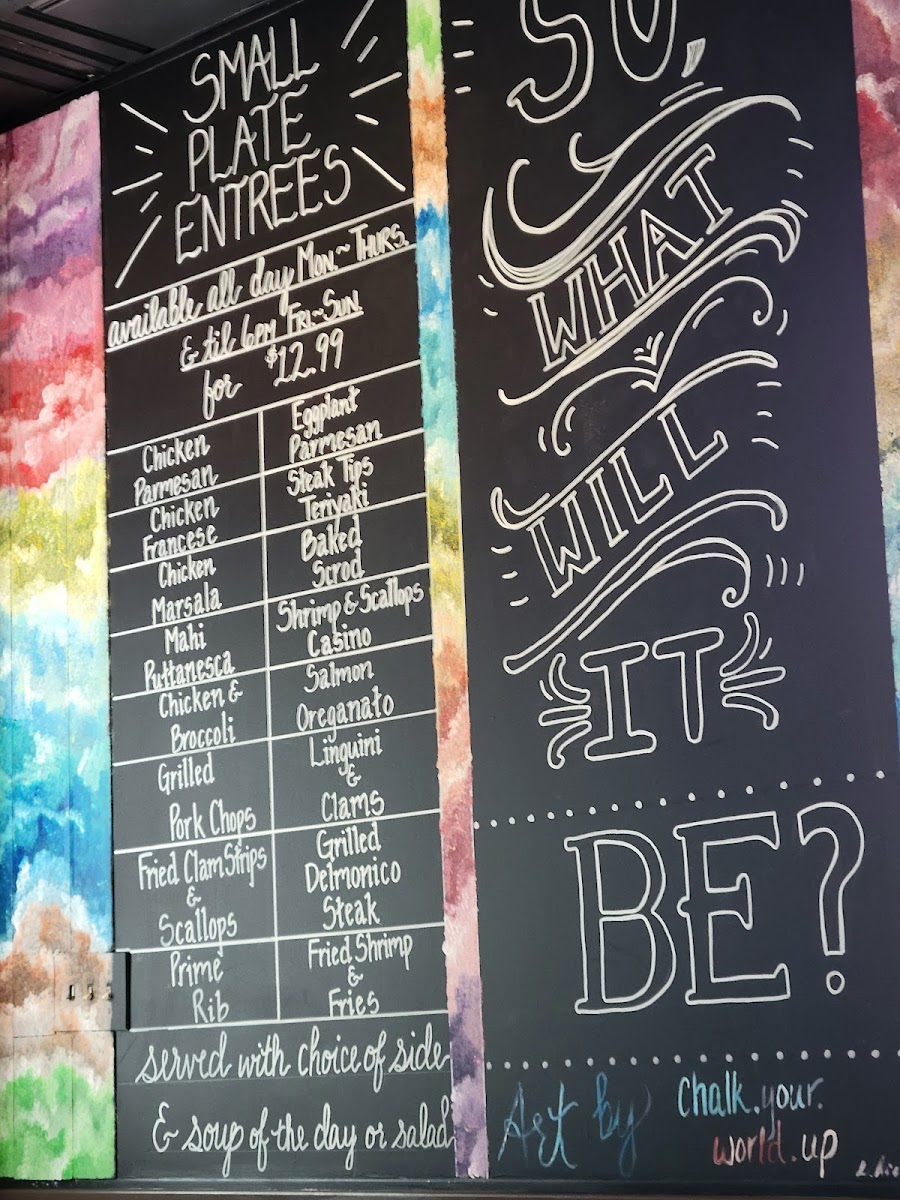 SMALL
PLATE
ENTREES
available all day MON.~THURS.
& til 6PM FRI~SUN.
for $12.99
Chicken
Parmesan
Chicken
Francese
Chicken
Marsala
Mahi
Puttanesca
Chicken &
Broccoli
Grilled
Pork Chops
Fried Clam Strips
&
Scallops
Prime
Rib
Eggplant
Parmesan
Steak Tips
Teriyaki
Baked
Scrod
Shrimp & Scallops
Casino
Salmon
Oreganato
Linguini
&
Clams
Grilled
Delmonico
Steak
Fried Shrimp
&
Fries
served with choice of side
& soup of the day or salad
SO,
WHAT
WILL
IT
BE?
Art by
chalk.your.
world.up